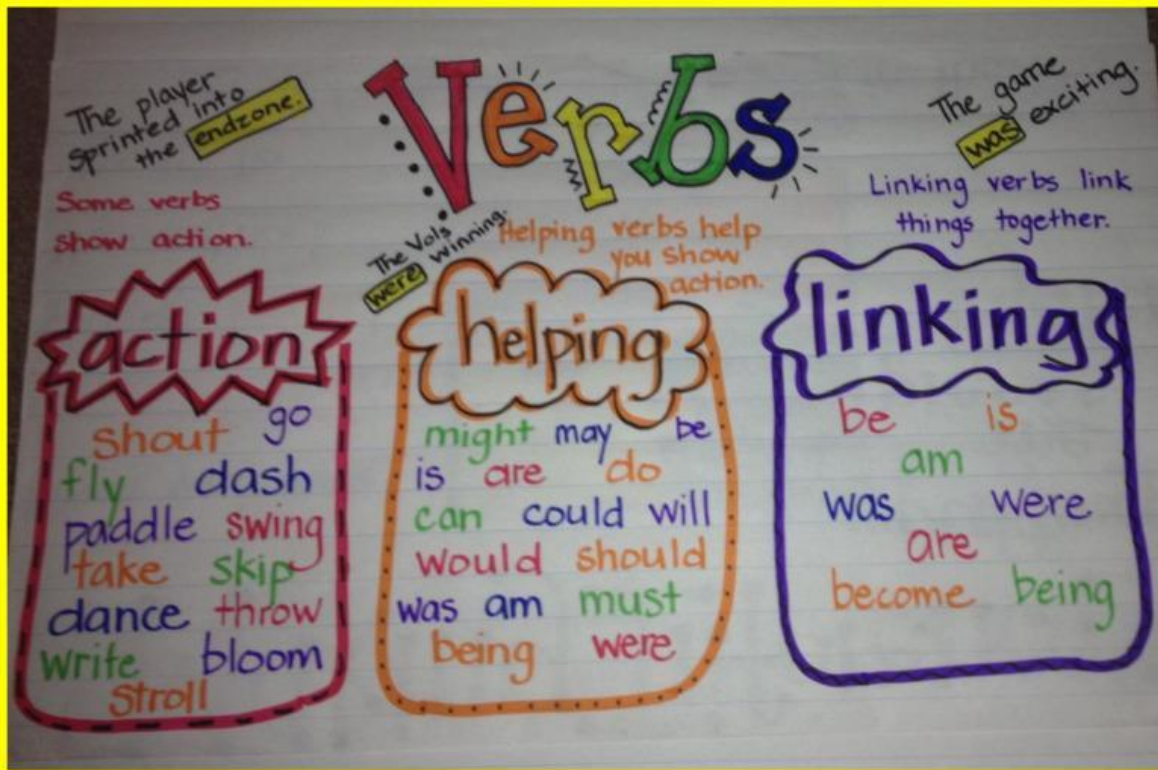 Verbs
The player
sprinted into
the endzone.
Some verbs
show action.
The Vols
were winning.
Helping verbs help
you show
action.
The game
was exciting.
Linking verbs link
things together.
action
shout go
fly dash
paddle swing
take skip
dance throw
write bloom
stroll
helping
might may be
is are do
can could will
would should
was am must
being were
linking
be is
am
was were
are
become being